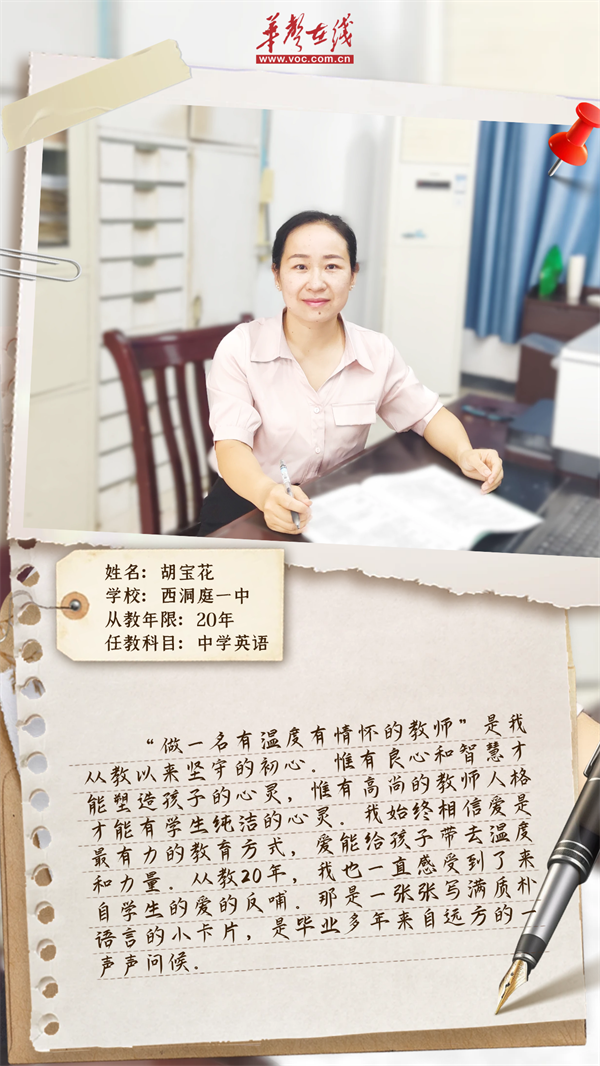 華聲在线
www.voc.com.cn
姓名：胡宝花
学校：西洞庭一中
从教年限：20年
任教科目：中学英语
“做一名有温度有情怀的教师”是我
从教以来坚守的初心．惟有良心和智慧才
能塑造孩子的心灵，惟有高尚的教师人格
才能有学生纯洁的心灵．我始终相信爱是
最有力的教育方式，爱能给孩子带去温度
和力量．从教20年，我也一直感受到了来
自学生的爱的反哺．那是一张张写满质朴
语言的小卡片，是毕业多年来自远方的一
声声问候．